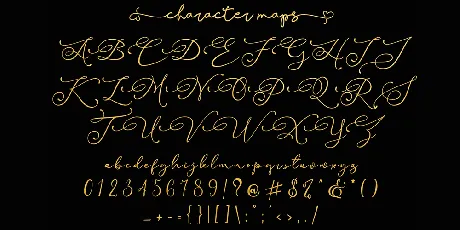 character maps
A B C D E F G H I J
K L M N O P Q R S
T U V W X Y Z
a b c d e f g h i j k l m n o p q r s t u v w x y z
0 1 2 3 4 5 6 7 8 9 ! ? @ # $ % ^ & * ( )
_ + - = { } | [ ] \ : " ; ' < > , . /